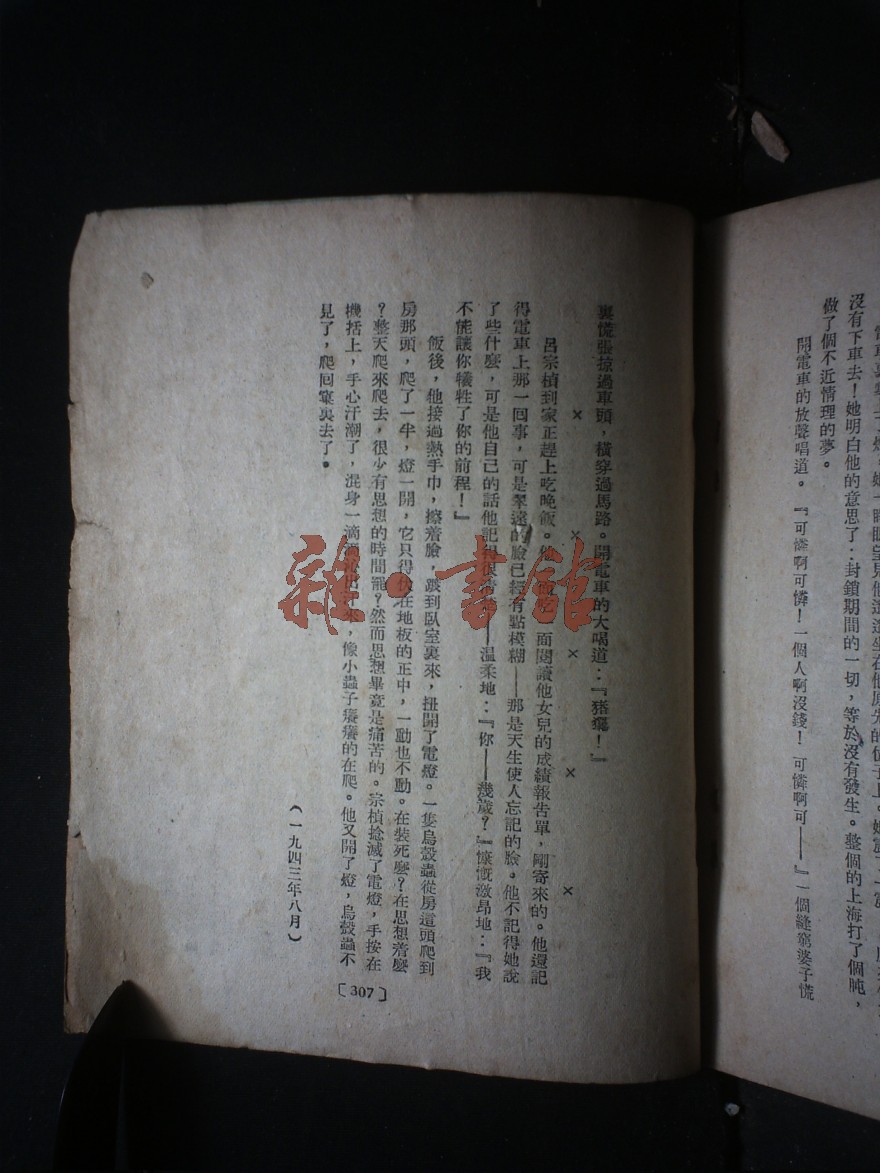 她一睜眼望見他遙遙坐在他原先的位子上。她震了一震
沒有下車去！她明白他的意思了：封鎖期間的一切，等於沒有發生。整個的上海打了個盹，
做了個不近情理的夢。
開電車的放聲唱道：『可憐啊可憐！一個人啊沒錢！可憐啊可——』一個縫窮婆子慌
裏慌張掠過車頭，橫穿過馬路。開電車的大喝道：『豬玀！』
× × × × ×
呂宗楨到家正趕上吃晚飯。他面閱讀他女兒的成績報告單，剛寄來的。他還記
得電車上那一回事，可是翠遠的臉已經有點模糊——那是天生使人忘記的臉。他不記得她說
了些什麼，可是他自己的話他記得很清楚——溫柔地：『你——幾歲？』慷慨激昂地：『我
不能讓你犧牲了你的前程！』
飯後，他接過熱手巾，擦着臉，踱到臥室裏來，扭開了電燈。一隻烏殼蟲從房這頭爬到
房那頭，爬了一半，燈一開，它只得伏在地板的正中，一動也不動。在裝死麼？在思想着麼
？整天爬來爬去，很少有思想的時間罷？然而思想畢竟是痛苦的。宗楨捻滅了電燈，手按在
機括上，手心汗潮了，混身一滴出汗來，像小蟲子癢癢的在爬。他又開了燈，烏殼蟲不
見了，爬回窠裏去了。
（一九四三年八月）
〔307〕
雜·書館